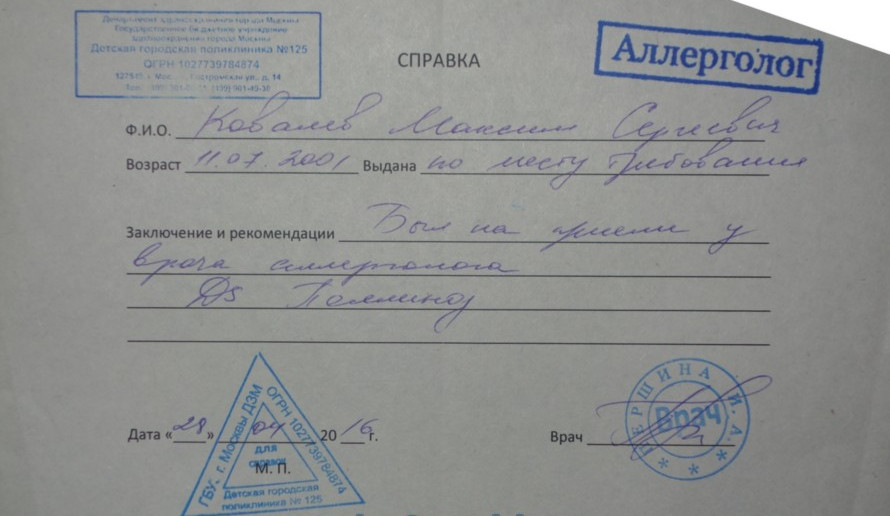 Департамент здравоохранения города Москвы
Государственное бюджетное учреждение
здравоохранения города Москвы
Детская городская поликлиника №125
ОГРН 1027739784874
127549, г. Москва, ул., д. 14
Аллерголог
СПРАВКА
Ф.И.О. Ковалев Максим Сергеевич
Возраст 11.07.2001 Выдана по месту требования
Заключение и рекомендации Был на приеме у
врача аллерголога
Ds Поллиноз
Дата «28» 04 2016 г.
М. П.
ГБУЗ г. Москвы ДЗМ
ОГРН 1027739784874
Детская городская
поликлиника № 125
для
справок
Врач
ПЕРШИНА И. А.
Врач